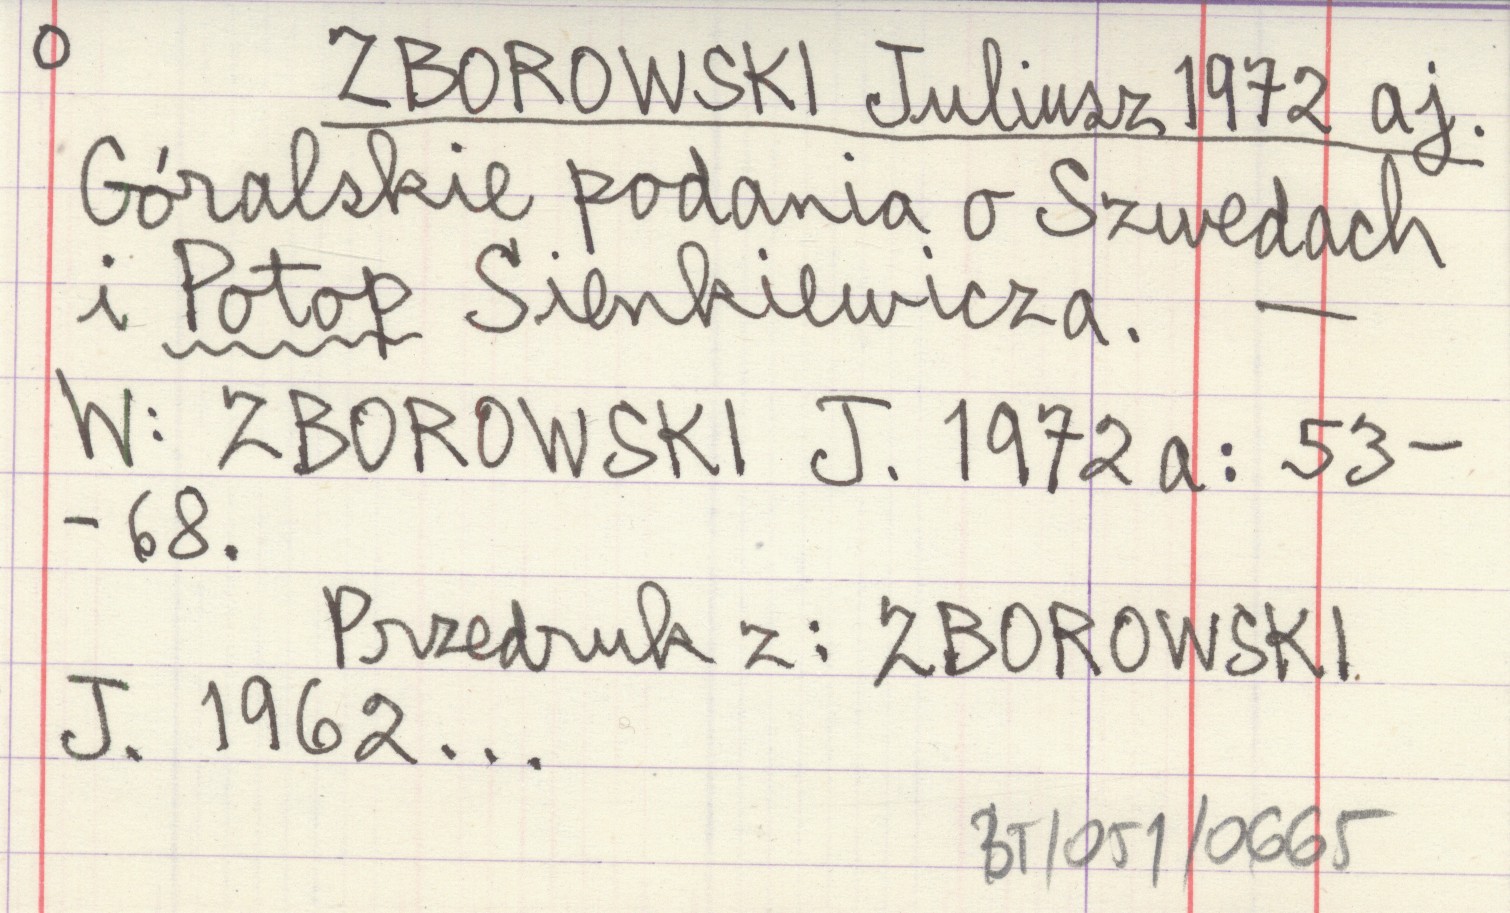 O ZBOROWSKI Juliusz 1972 aj.
Góralskie podania o Szwedach
i Potop Sienkiewicza. —
W: ZBOROWSKI J. 1972a: 53-
-68.
Przedruk z: ZBOROWSKI
J. 1962...
BT/051/0665